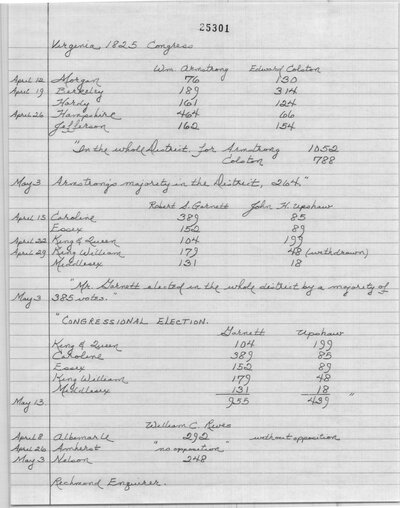 25301
Virginia, 1825 Congress
Wm Armstrong Edward Colston
April 12 Morgan 76 130
April 19 Berkeley 189 314
Hardy 161 124
April 26 Hampshire 464 66
Jefferson 162 154
"In the whole District, for Armstrong 1052
Colston 788
May 3 Armstrong's majority in the District, 264."
Robert S. Garnett John H. Upshaw
April 15 Caroline 389 85
Essex 152 89
April 22 King & Queen 104 199
April 29 King William 179 48 (withdrawn)
Middlesex 131 18
"Mr Garnett elected in the whole district by a majority of
May 3 385 votes."
"CONGRESSIONAL ELECTION.
Garnett Upshaw
King & Queen 104 199
Caroline 389 85
Essex 152 89
King William 179 48
Middlesex 131 18
May 13. 955 439 "
William C. Rives
April 8 Albemarle 292 without opposition
April 26 Amherst "no opposition"
May 3 Nelson 248
Richmond Enquirer.